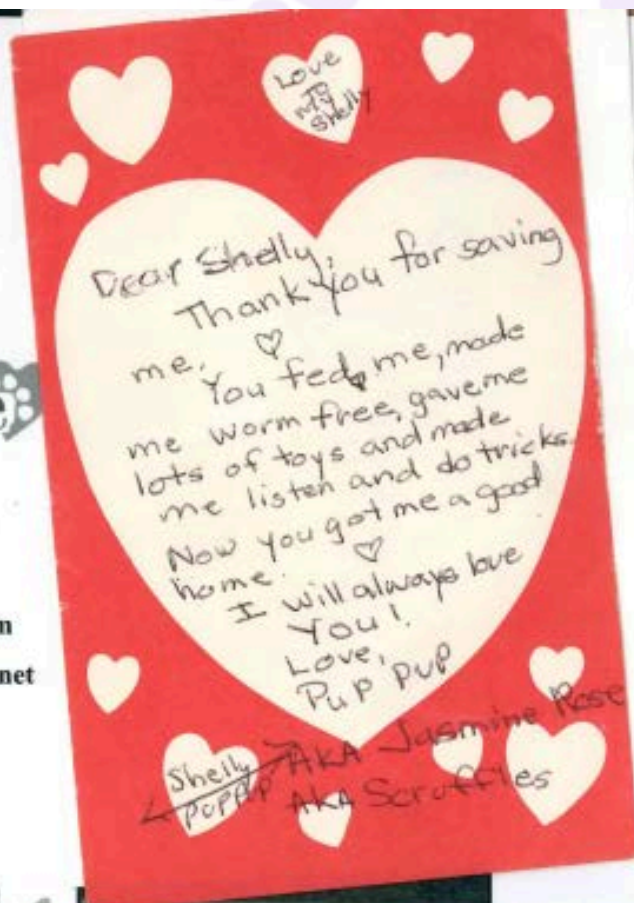 Love
To
My
Shelly
Dear Shelly,
Thank you for saving
me. ♡
You fed me, made
me worm free, gave me
lots of toys and made
me listen and do tricks.
Now you got me a good
home. ♡
I will always love
You!.
Love,
Pup Pup
AKA Jasmine Rose
AKA Scruffles
Shelly
PUPPUP
net